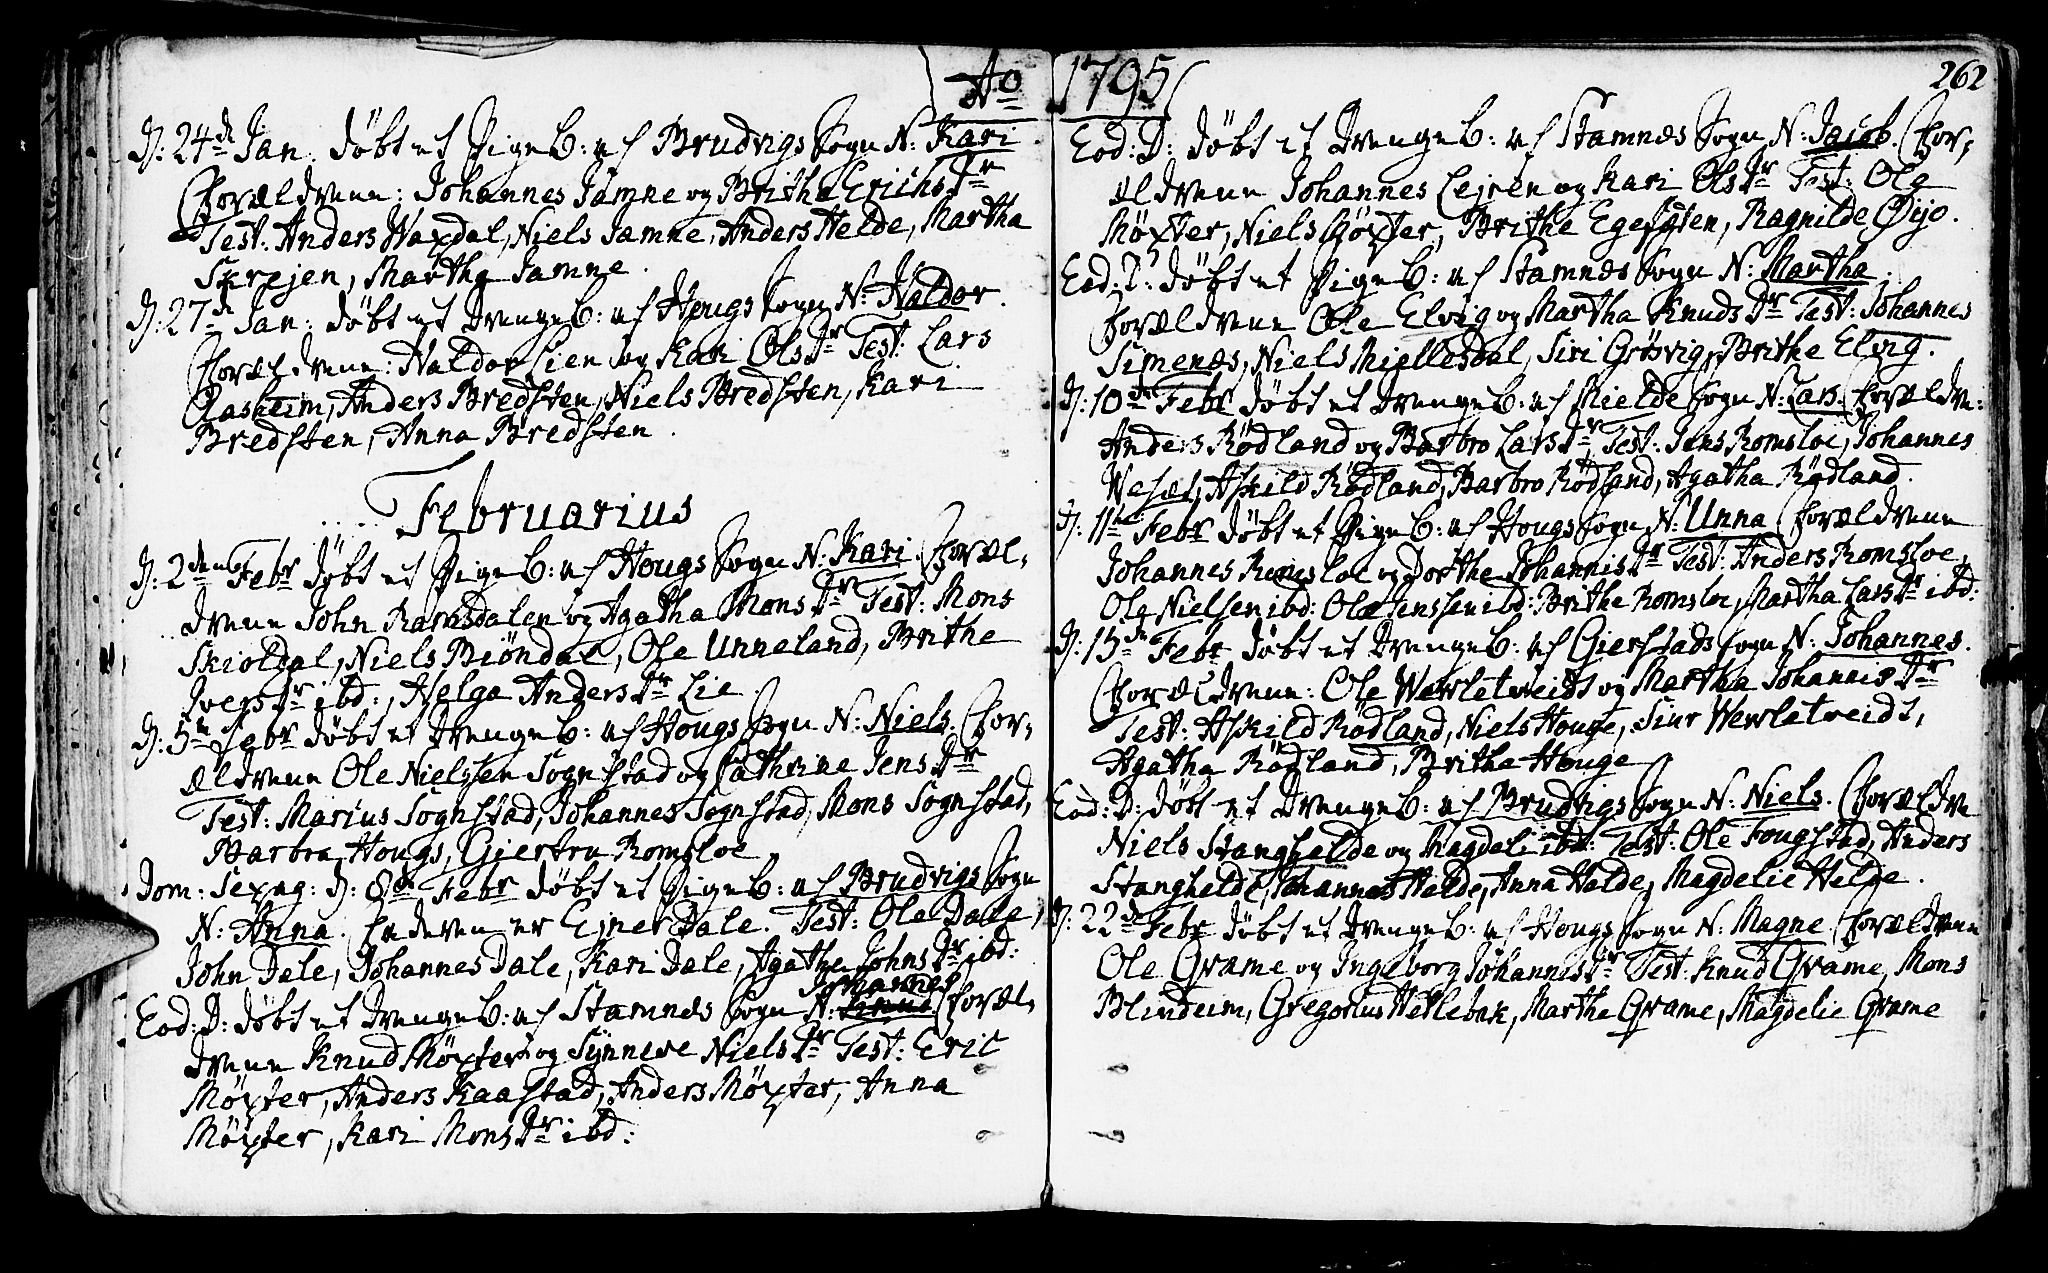 Ao 1795
262
D: 24de Jan. døbt et Pigeb: af Brudvigs Sogn N: Kari
Forældrene: Johannes Jamne og Brithe Erichs Dr
Test: Anders Waxdal, Niels Jamne, Anders Helde, Martha
Skrejen, Marthe Jamne.
D: 27de Jan: døbt et Drengeb: af Hougs Sogn N: Haldor.
Forældrene: Haldor Lien og Kari Ols Dr Test: Lars
Aasheim, Anders Bredsten, Niels Bredsten, Kari
Bredsten, Anna Bredsten.
Februarius
D: 2den Febr døbt et Pigeb: af Hougs Sogn N: Kari. Foræl-
drene John Ramsdalen og Agatha Mons Dr Test: Mons
Skioldal, Niels Biöndal, Ole Unneland, Brithe
Ivers Dr ibd:, Helga Anders Dr Lie.
D: 5te Febr døbt et Drengeb: af Hougs Sogn N: Niels. For-
ældrene Ole Nielssen Sognstad og Cathrine Jens Dr
Test: Marius Sognstad, Johannes Sognstad, Mons Sognstad,
Barbra Hougs, Giertru Romsloe.
Dom: Sexag: D: 8de Febr døbt et Pigeb: af Brudvigs Sogn
N: Anna. Faderen er Ejner Dale. Test: Ole Dale,
John Dale, Johannes Dale, Kari Dale, Agathe Johns Dr ibd:
Johannes
Eod: D: døbt et Drengeb: af Stamnes Sogn N: Foræl-
drene Knud Møxter og Synneve Niels Dr Test: Eric
Møxter, Anders Kaastad, Anders Møxter, Anna
Møxter, Kari Mons Dr ibd:
Eod: D: døbt et Drengeb: af Stamnes Sogn N: Jacob. For-
ældrene Johannes Lejren og Kari Ols Dr Test: Ole
Møxter, Niels Møxter, Brithe Eges, Ragnilde Øijo.
Eod: D: døbt et Pigeb: af Stamnes Sogn N: Martha.
Forældrene Ole Elvig og Martha Knuds Dr Test: Johannes
Simenæs, Niels Miellesdal, Siri Grøsvig, Brithe Elvig.
D: 10de Febr døbt et Drengeb: af Mielde Sogn N: Lars. Forældre:
Anders Rödland og Barbro Lars Dr, Test: Jens Romsloe, Johannes
Wesæt, Askild Rödland, Barbro Rödland, Agatha Rødland.
D: 11te Febr døbt et Pigeb: af Hougs Sogn N: Unna Forældrene
Johannes Romsloe og Dorthe Johannis Dr Test: Anders Romsloe,
Ole Nielsen ibd: Ole Jenssen ibd: Brithe Romsloe, Martha Lars Dr ibd:
D: 15de Febr døbt et Drengeb: af Gierstads Sogn N: Johannes.
Forældrene: Ole Wevletveidt og Martha Johannis Dr
Test: Askild Rødland, Niels Houge, Siur Wevletveidt,
Agatha Rödland, Britha Houge
Eod: D: døbt et Drengeb: af Brudvigs Sogn N: Niels. Forældre
Niels Stanghelde og Magdeli ibd: Test: Ole Fougstad, Anders
Stanghelde, Johannes Halde, Anna Halde, Magdelie Helde.
D: 22de Febr døbt et Drengeb: af Hougs Sogn N: Magne. Forældrene
Ole Grame og Ingeborg Johannis Dr Test: Knud Grame, Mons
Blindeim, Gregorius Hetlebak, Marthe Grame, Magdelie Grame